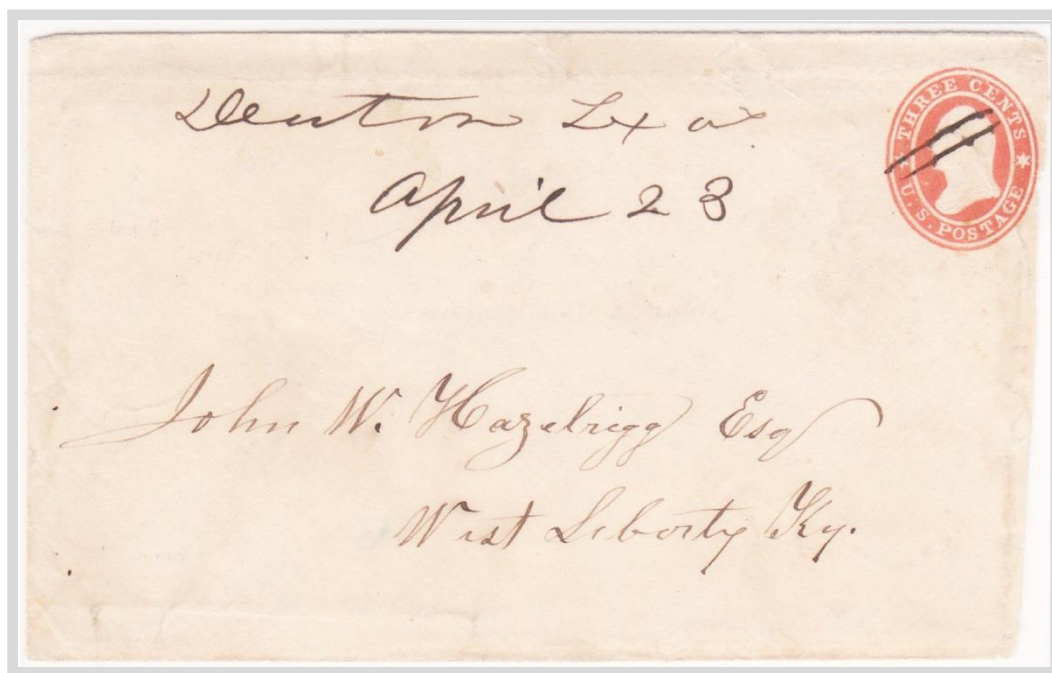 Denton Txas
April 23
THREE CENTS
U.S. POSTAGE
John W. Hazelrigg Esq
West Liberty Ky.